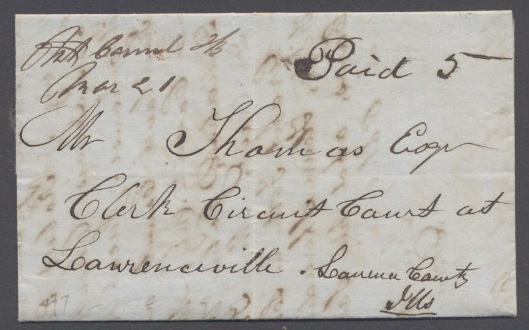 Mt Carmel Ills
Mar 21
Paid 5
Mr Thomas Esqr
Clerk Circuit Court at
Lawrenceville . Lawrence County
Ills